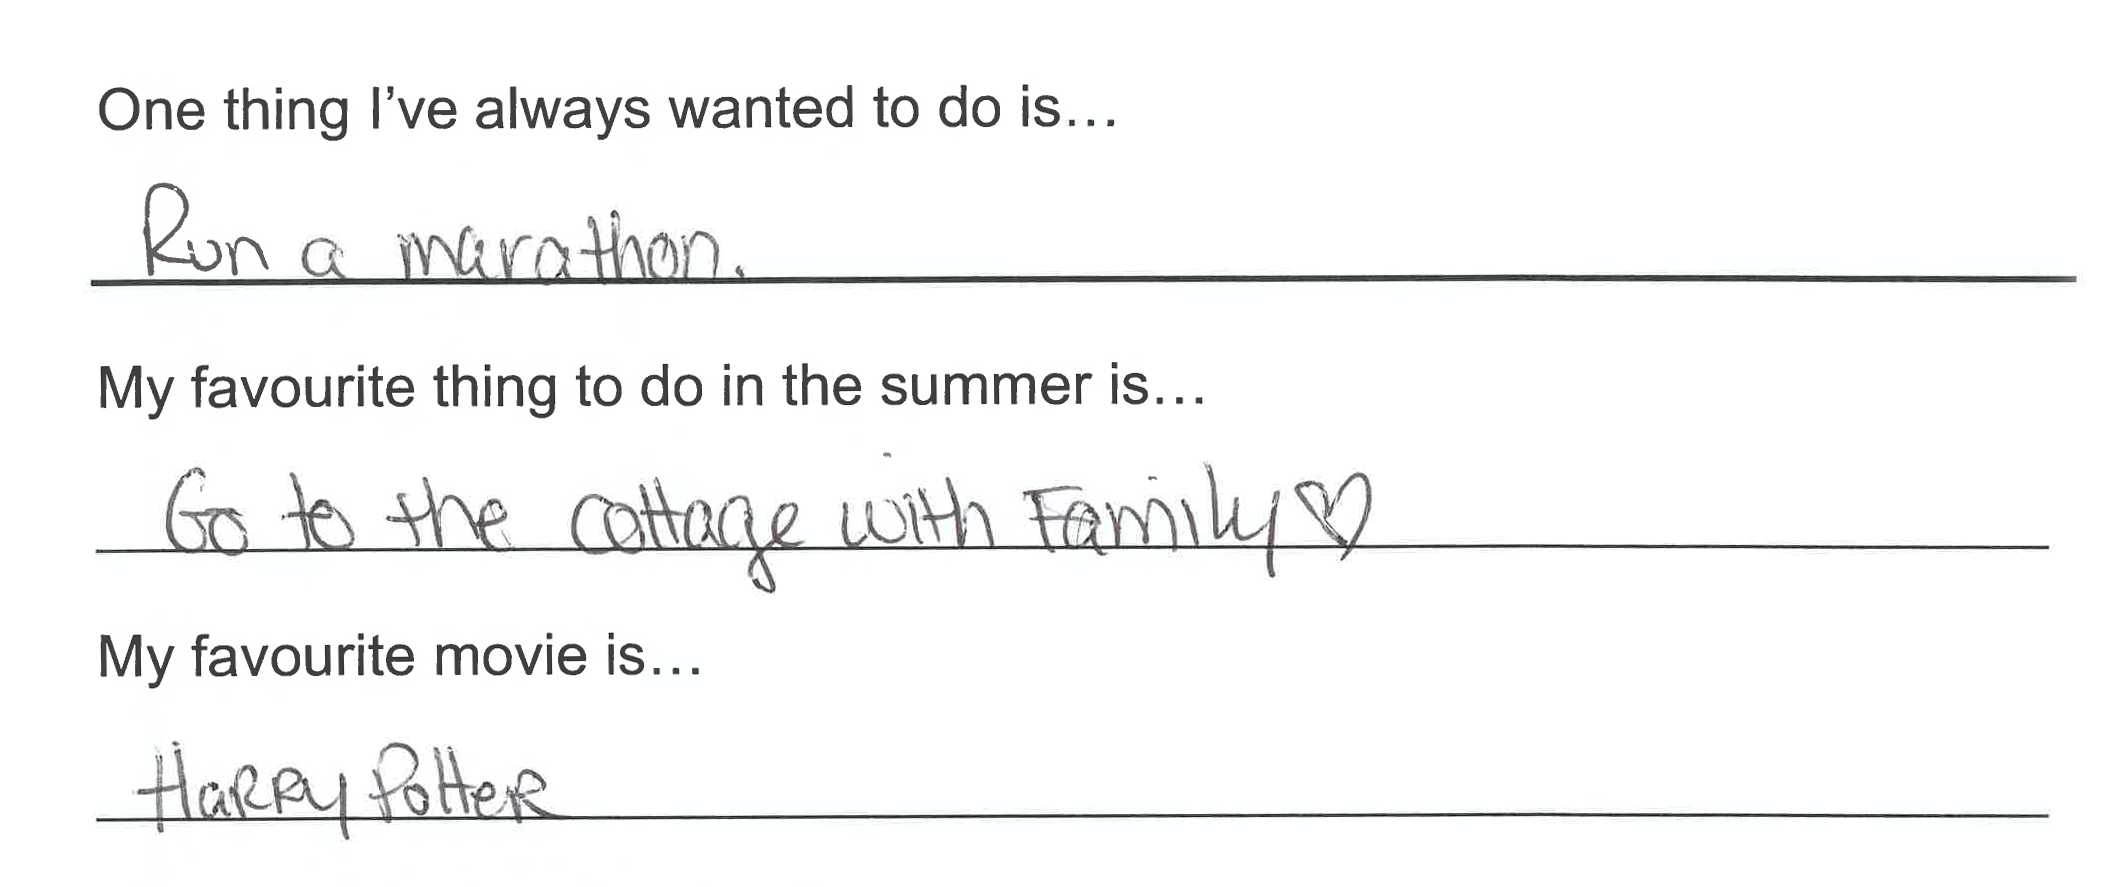 One thing I've always wanted to do is...
Run a marathon.
My favourite thing to do in the summer is...
Go to the cottage with Family♡
My favourite movie is...
Harry Potter